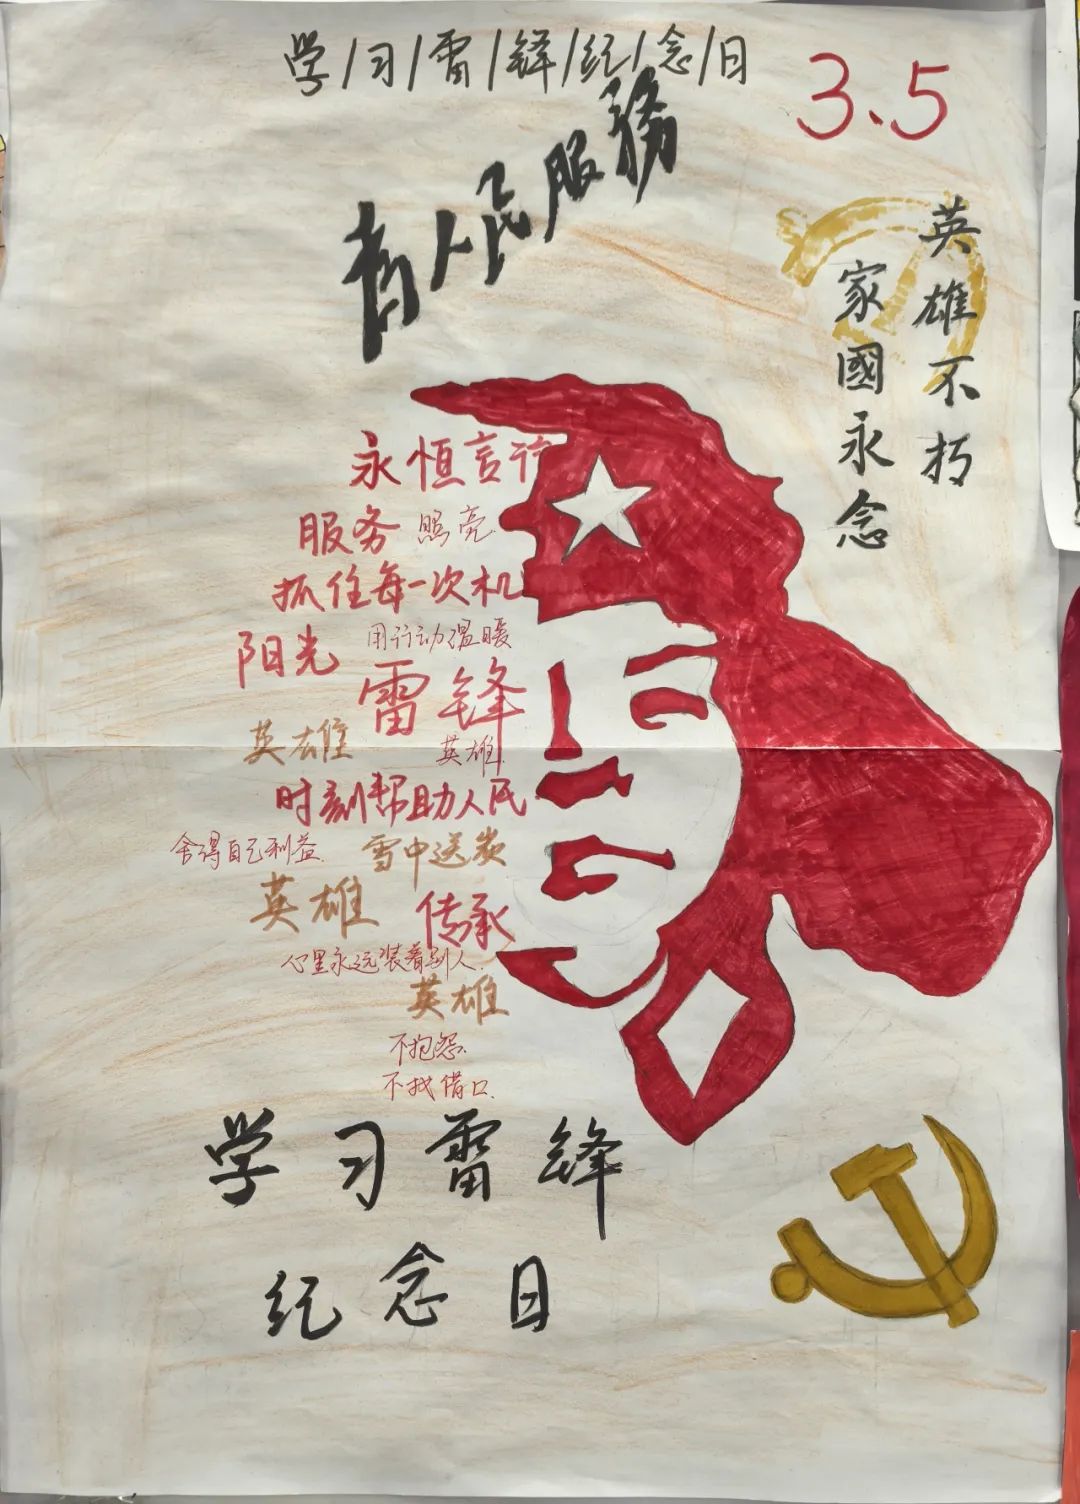 学/习/雷/锋/纪/念/日
3.5
为人民服務
英雄不朽
家國永念
永恒言行
服务 照亮
抓住每一次机
阳光 用行动温暖
雷锋
英雄 英雄
时刻帮助人民
舍得自己利益 雪中送炭
英雄 传承
心里永远装着别人
英雄
不抱怨
不找借口
学习雷锋
纪念日